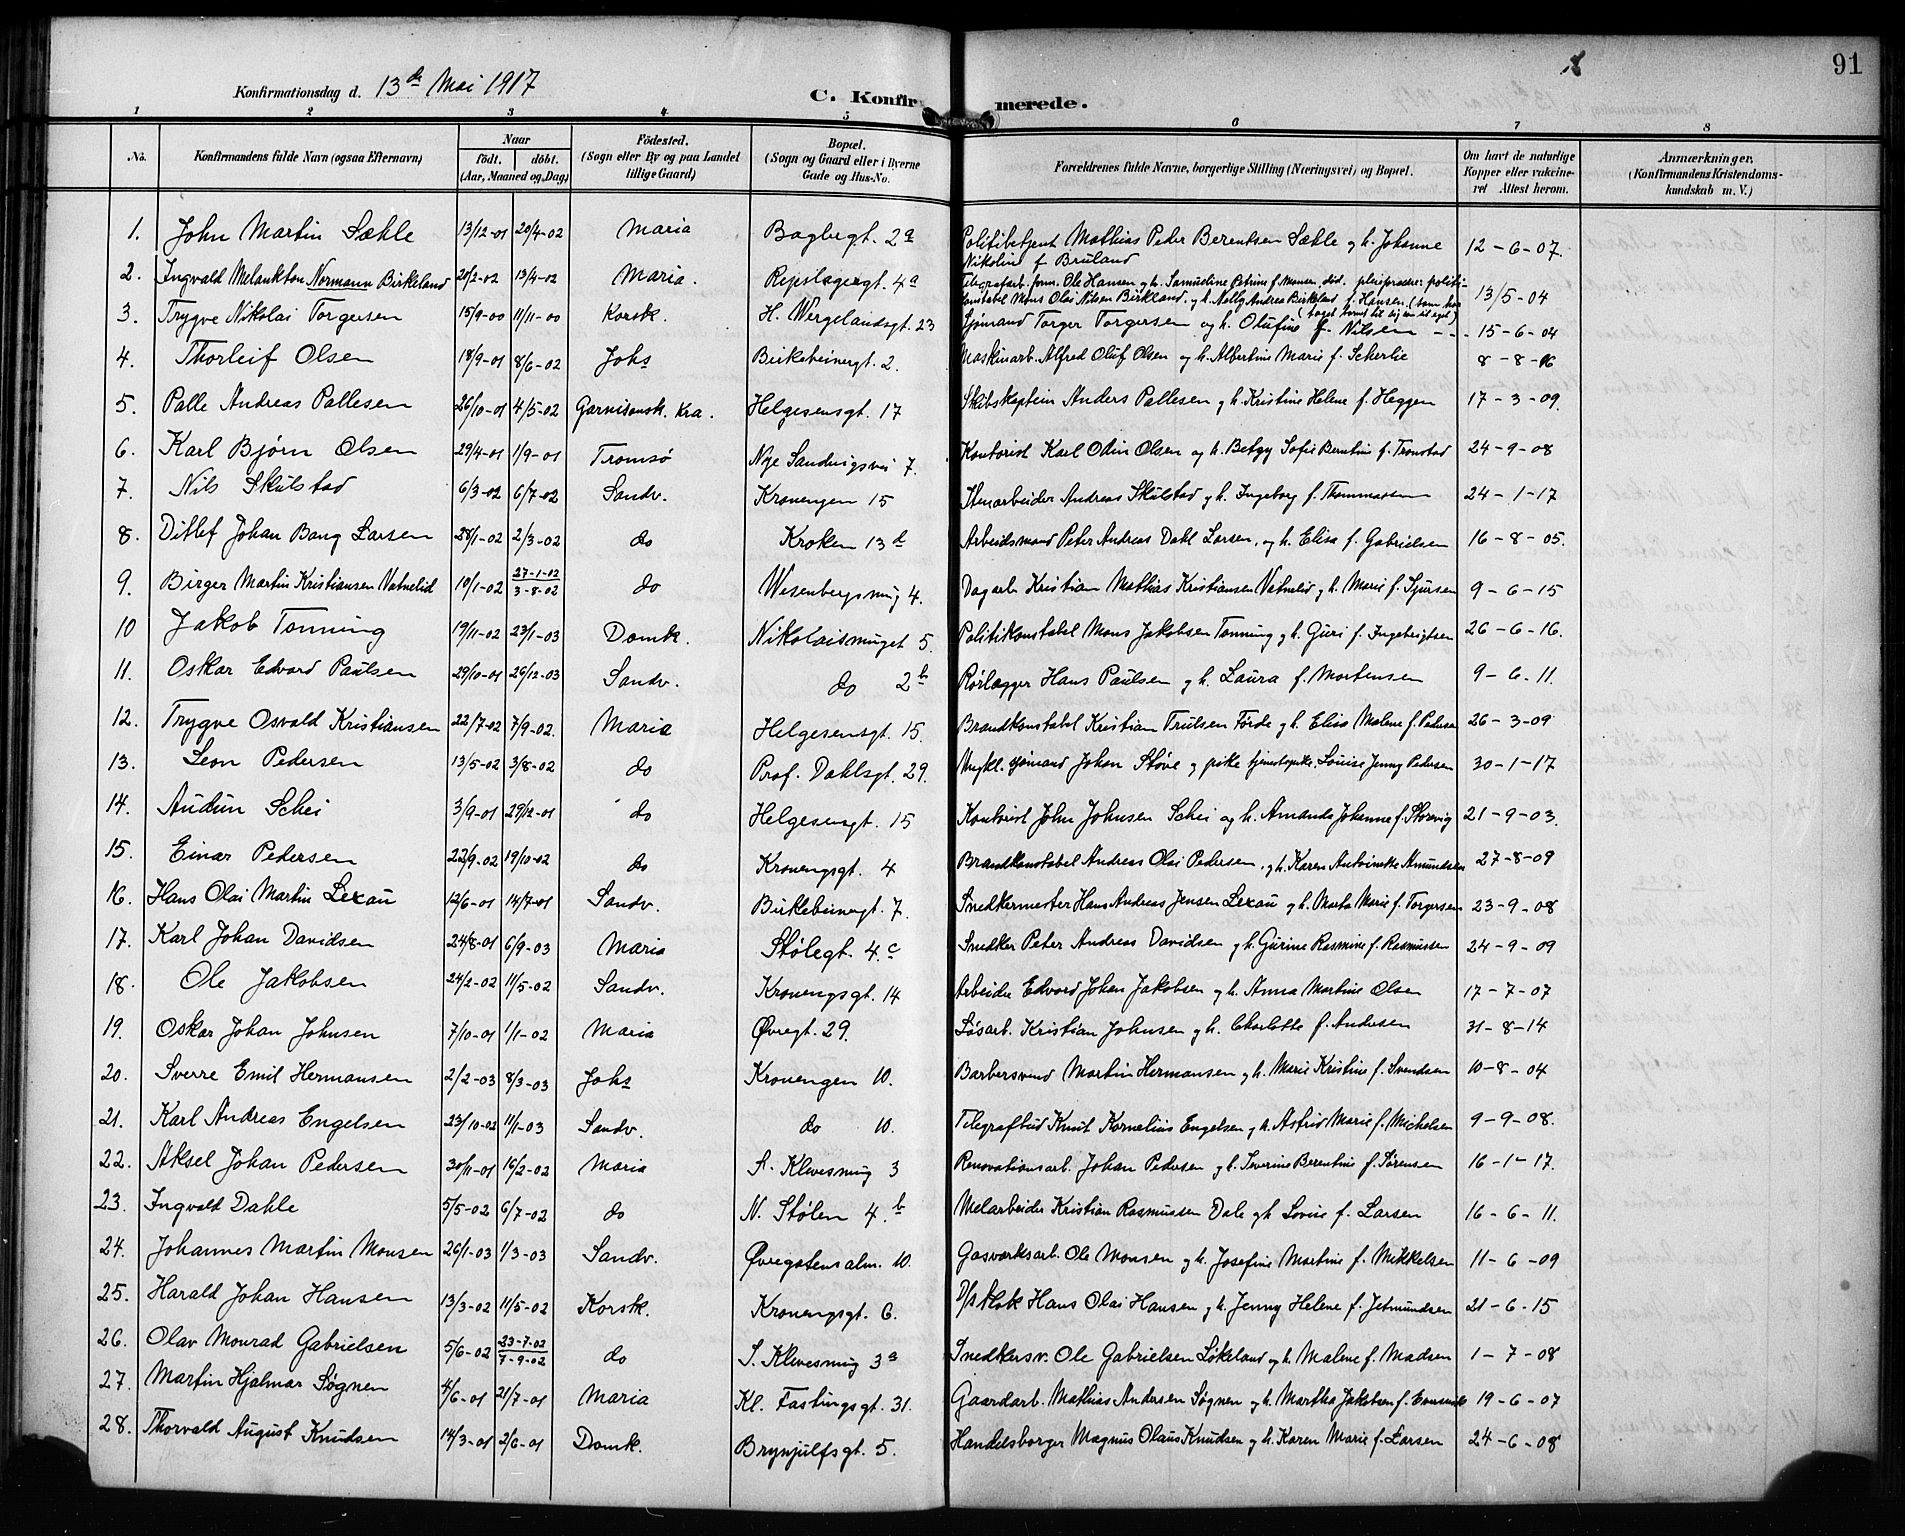 91
Konfirmationsdag d. 13de Mai 1917
C. Konfirmerede.
1 2 3 4 5 6 7 8
No. Konfirmandens fulde Navn (ogsaa Efternavn) Naar födt. döbt. (Aar, Maaned og Dag) Födested. (Sogn eller By og paa Landet tillige Gaard) Bopæl. (Sogn og Gaard eller i Byerne Gade og Hus-No. Forældrenes fulde Navne, borgerlige Stilling (Næringsvei) og Bopæl. Om havt de naturlige Kopper eller vakcineret Attest herom. Anmærkninger. (Konfirmandens Kristendomskundskab m. V.)
1. John Martin Sæhle 13/12-01 20/4-02 Maria Bagbergt. 2a Politibetjent Mathias Peder Berentsen Sæhle og h. Johanne Nikoline f Bruland 12-6-07.
2. Ingvald Melankton Normann Birkeland 20/2-02 13/4-02 Maria. Repslagergt. 4a Telegrafarb. Ole Hansen og h. Samueline Petrine f. Monsen død. pleieforældre: politikonstabel Mons Olai Nilsen Birkland og h. Nelly Andrea Birkeland f. Hansen 13/5-04
3. Trygve Nikolai Torgersen 15/9-00 11/11-00 Korsk. H. Wergelandsgt. 23 Sjømand Torger Torgersen og h. Olufine f. Nilsen 15-6-04
4. Thorleif Olsen 18/9-01 8/6-02 Johs Birkebeinergt. 2. Maskinarb. Alfred Oluf Olsen og h. Albertine Marie f. Scherlie 8-8-16
5. Palle Andreas Pallesen 26/10-01 4/5-02 Garnisonsk. Kra. Helgesensgt. 17 Skibskaptein Anders Pallesen og h. Kristine Helene f. Heggen 17-3-09.
6. Karl Bjørn Olsen 29/4-01 1/9-01 Tromsø Nye Sandvigsvei 7. Kontorist Karl Odin Olsen og h. Betzy Sofie Berntine f. Tronstad 24-9-08
7. Nils Skulstad 6/3-02 6/7-02 Sandv. Kronengen 15 Stenarbeider Andreas Skulstad og h. Ingeborg f. Thommassen 24-1-17
8. Ditlef Johan Bang Larsen 28/1-02 2/3-02 do Kroken 13d Arbeidsmand Peter Andreas Dahl Larsen, og h. Elisa f. Gabrielsen 16-8-05.
9. Birger Martin Kristiansen Vatnelid 10/1-02 27-1-02 3-8-02 do Wesenbergsmug 4. Dagarb. Kristian Mathias Kristiansen Vatnelid og h. Marie f. Sjursen 9-6-15
10 Jakob Tonning 19/11-02 23/1-03 Domk. Nikolaismuget 5. Politikonstabel Mons Jakobsen Tonning og h. Guri f. Ingebrigtsen 26-6-16.
11. Oskar Edvard Paulsen 29/10-01 26/12-03 Sandv. do 2b Rørlægger Hans Paulsen og h. Laura f. Mortensen 9-6-11.
12. Trygve Osvald Kristiansen 22/7-02 7/9-02. Maria Helgesensgt. 15. Brandkonstabel Kristian Trulsen Førde og h. Elisa Malene f. Pedersen 26-3-09
13. Leon Pedersen 13/5-02 3/8-02 do Prof. Dahlsgt. 29. Ungkl. sjømand Johan Støve og pike tjenestepike Louise Jenny Pedersen 30-1-17
14. Audun Schei 3/9-01 29/12-01 do Helgesensgt. 15 Kontorist John Johnsen Schei og h. Amanda Johanne f. Storevig 21-9-03.
15. Einar Pedersen 22/9-02 19/10-02 do Kronengsgt. 4 Brandkonstabel Andreas Olai Pedersen, og h. Karen Antoinette Amundsen 27-8-09
16. Hans Olai Martin Lexau 12/6-01 14/7-01 Sandv. Birkebeinergt. 7. Snedkermester Hans Andreas Jensen Lexau og h. Marta Marie f. Torgersen 23-9-08
17. Karl Johan Davidsen 24/8-01 6/9-03 Maria Stølegt. 4.c Snedker Peter Andreas Davidsen og h. Gurine Rasmine f. Rasmussen 24-9-09
18. Ole Jakobsen 24/2-02 11/5-02 Sandv. Kronengsgt. 14 Arbeider Edvard Johan Jakobsen og h. Anna Martine Olsen 17-7-07
19. Oskar Johan Johnsen 7/10-01 1/1-02 Maria Øvregt. 29. Løsarb. Kristian Johnsen og h. Charlotte f. Andersen 31-8-14
20. Sverre Emil Hermansen 2/2-03 8/3-03 Johs Kronengen 10. Barbersvend Martin Hermansen og h. Marie Kristine f. Svendsen 10-8-04
21. Karl Andreas Engelsen 23/10-02 11/1-03 Sandv. do 10. Telegrafbud Knut Kornelius Engelsen og h. Astrid Marie f. Michelsen 9-9-08.
22. Aksel Johan Pedersen 30/11-01 16/2-02 Maria S. Klevesmug 3 Renovationsarb. Johan Pedersen og h. Severine Berentine f. Sørensen 16-1-17.
23. Ingvald Dahle 5/5-02 6/7-02 do N. Stølen 4.b Melarbeider Kristian Rasmussen Dale og h Lovise f. Larsen 16-6-11.
24. Johannes Martin Monsen 26/1-03 1/3-03 Sandv. Øvregatensalm. 10. Gasværksarb. Ole Monsen og h. Josefine Martine f. Mikkelsen 11-6-09
25. Harald Johan Hansen 13/3-02 11/5-02 Korsk. Kronengsgt. 6. D/s kok Hans Olai Hansen og h. Jenny Helene f. Jetmundsen 21-6-15
26. Olav Monrad Gabrielsen 5/6-02 23-7-02 7-9-02 do S. Klevesmug 3a Snedkersv. Ole Gabrielsen Løkeland og h. Malene f. Madsen 1-7-08
27. Martin Hjalmar Søgnen 4/6-01 21/7-01 Maria Kl. Fastingsgt. 31. Gaardarb. Mathias Andersen Søgnen og h. Martha Jakobsen f. 19-6-07
28. Thorvald August Knudsen 14/3-01 2/6-01 Domk. Brynjulfsgt. 5. Handelsborger Magnus Olaus Knudsen og h. Karen Marie f. Larsen 24-6-08